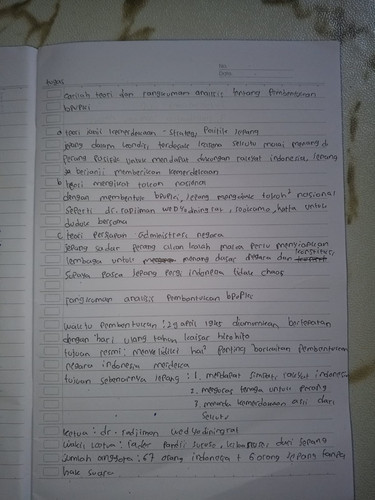 No:
Date:
tugas
carilah teori dan rangkuman analisis tentang Pembentukan
BPUPKI
a teori janji kemerdekaan - strategi Politik Jepang
Jepang dalam kondisi terdesak karena sekutu mulai menang di
Perang Pasifik untuk mendapat dukungan rakyat indonesia Jepang
berjanji memberikan kemerdekaan
b teori mengikat tokoh nasional
dengan membentuk bpupki, Jepang mengajak tokoh² nasional
seperti dr. rajiman wedyodiningrat, soekarno, hatta untuk
duduk bersama
c teori persiapan administrasi negara
Jepang sadar perang akan kalah maka perlu menyiapkan
lembaga untuk merancang dasar negara dan konstitusi
supaya pasca Jepang pergi indonesia tidak chaos
rangkuman analisis Pembentukan BPUPKI
waktu Pembentukan : 29 april 1945 diumumkan bertepatan
dengan hari ulang tahun kaisar hirohito
tujuan resmi : menyelidiki hal² penting berkaitan pembentukan
negara indonesia merdeka
tujuan sebenarnya Jepang : 1. mendapat simpati rakyat indonesia
2. menguras tenaga untuk perang
3. menunda kemerdekaan asli dari
sekutu
ketua : dr. radjiman wedyodiningrat
wakil ketua :
jumlah anggota : 67 orang indonesia + 6 orang Jepang tanpa
hak suara